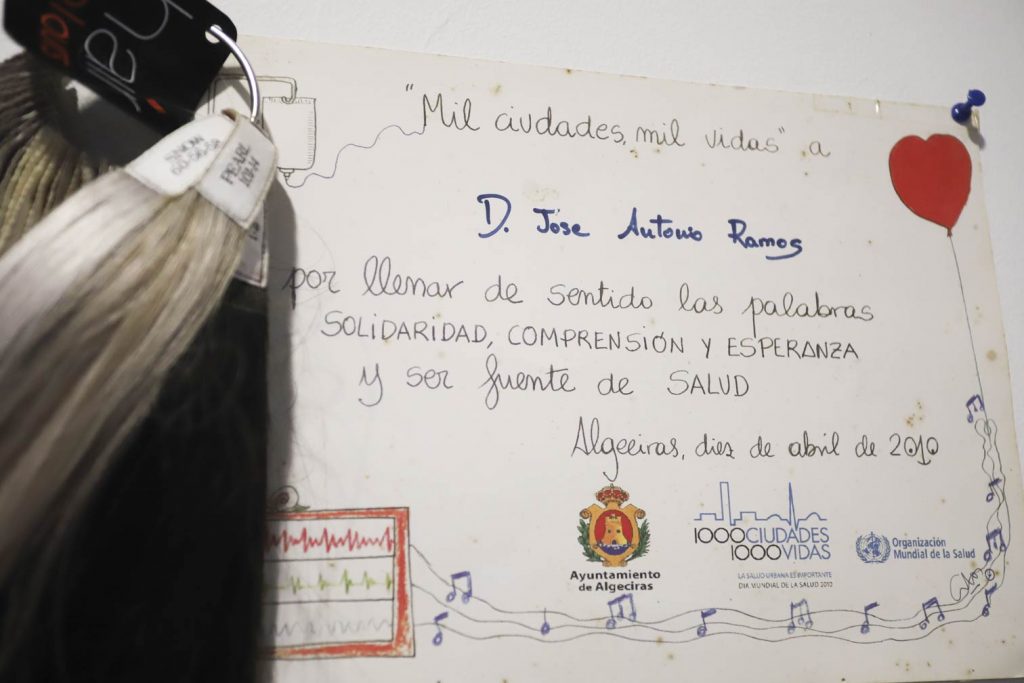 hair
"Mil ciudades, mil vidas" a
D. Jose Antonio Ramos
por llenar de sentido las palabras
SOLIDARIDAD, COMPRENSIÓN Y ESPERANZA
y ser fuente de SALUD
Algeciras, diez de abril de 2010
PEARL
Ayuntamiento
de Algeciras
1000CIUDADES
1000VIDAS
LA SALUD URBANA ES IMPORTANTE
DIA MUNDIAL DE LA SALUD 2010
Organización
Mundial de la Salud